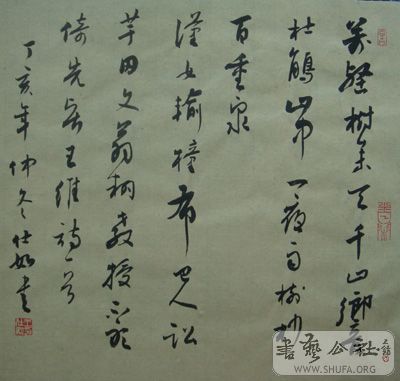 萬壑樹參天千山響
杜鵑山中一夜雨樹杪
百重泉
漢女輸橦布巴人訟
芋田文翁翻教授不敢
倚先賢王維詩一首
丁亥年仲冬仕
書藝公社
WWW.SHUFA.ORG